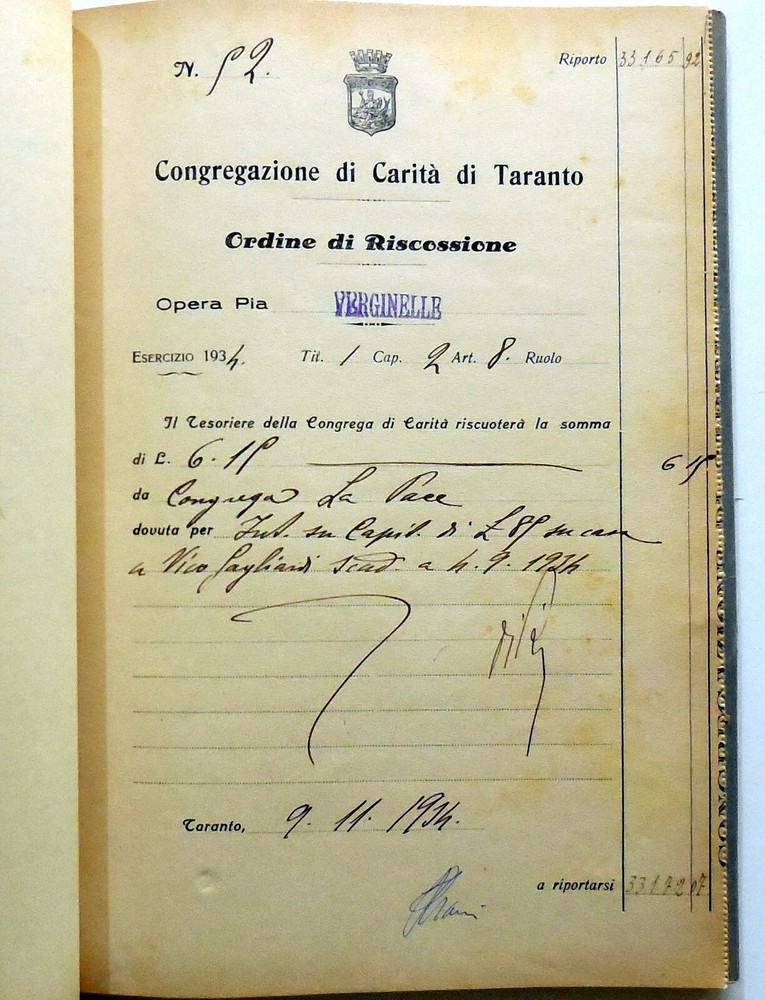 N. 52.
Riporto 33165 92
Congregazione di Carità di Taranto
Ordine di Riscossione
Opera Pia VERGINELLE
Esercizio 1934. Tit. 1 Cap. 2 Art. 8. Ruolo
Il Tesoriere della Congrega di Carità riscuoterà la somma
di L. 6.15 6 15
da Congrega La Pace
dovuta per Int. su Capit. di £ 85 su casa
a Vico Gagliardi scad. a 4.9.1934
Taranto, 9.11.1934.
a riportarsi 33172 07